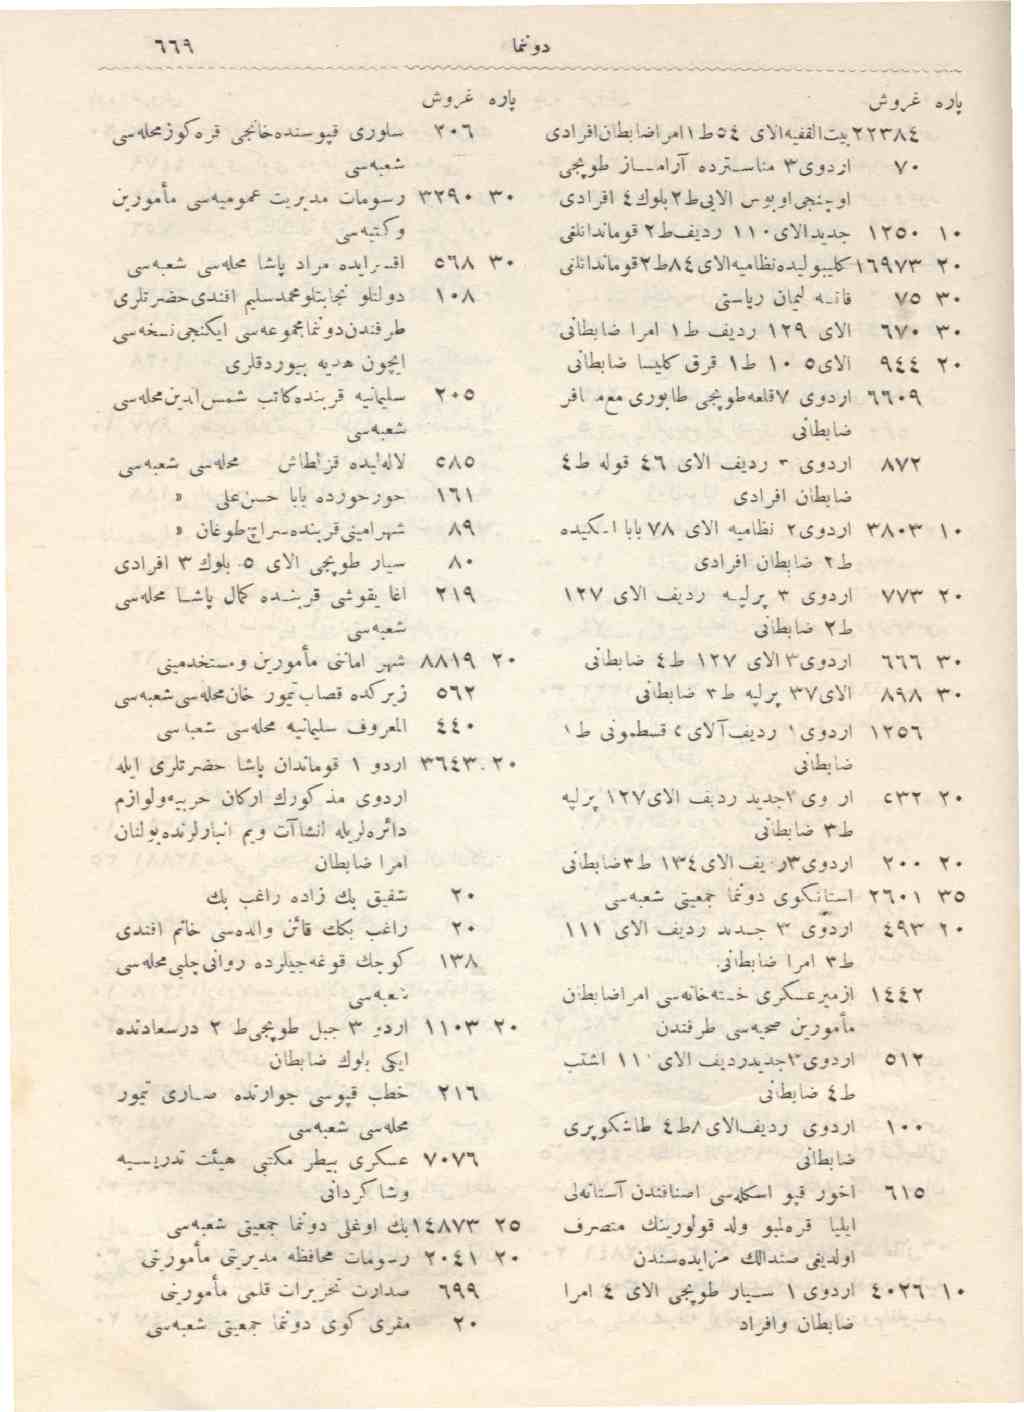 دوننما ٦٦٩
پاره غروش
٢٢٣٨٤ بيت الفقيه الاى ٥٤ ط ١ امرا ضابطان افرادى
٧٠ اردوى ٣ مناستردە آرام ساز طوپجى
اوچنجى اوبوس الايى ط ٢ بلوك ٤ افرادى
١٠ ١٢٥٠ جديد الاى ١١٠ رديف ط ٢ قومانداننلغى
٢٠ ١٦٩٧٣ كليبوليده نظاميه الاى ٨٤ ط ٢ قوماندانلغى
٣٠ ٧٥ ليمان رياستى
٣٠ ٦٧٠ الاى ١٢٩ رديف ط ١ امرا ضابطانى
٢٠ ٩٤٤ الاى ٥ ١٠ ط ١ قرق كليسا ضابطانى
٦٦٠٩ اردوى ٧ قلعه طوپجى طابورى مع افر
ضابطانى
٨٧٢ اردوى رديف الاى ٤٦ قوله ط ٤
ضابطان افرادى
١٠ ٣٨٠٣ اردوى ٢ نظاميه الاى ٧٨ بابا اسكيده
ط ٢ ضابطان افرادى
٢٠ ٧٧٣ اردوى ٣ پرلپه رديف الاى ١٢٧
ط ٢ ضابطانى
٣٠ ٦٦٦ اردوى ٣ الاى ١٢٧ ط ٤ ضابطانى
٣٠ ٨٩٨ الاى ٣٧ پرلپه ط ٣ ضابطانى
١٢٥٦ اردوى ١ رديف آلاى قسطمونى ط ١
ضابطانى
٢٠ ٢٣٢ اردوى ٣ جديد رديف الاى ١٢٧ پرلپه
ط ٣ ضابطانى
٢٠ ٢٠٠ اردوى ٣ رديف الاى ١٣٤ ط ٣ ضابطانى
٣٥ ٢٦٠١ استانكوى دوننما جمعيتى شعبه‌سى
٢٠ ٤٩٣ اردوى ٣ جديد رديف الاى ١١١
ط ٣ امرا ضابطانى
١٤٤٢ ازمير عسكرى خسته‌خانه‌سى امرا ضابطان
مأمورين صحيه‌سى طرفندن
٥١٢ اردوى ٣ جديد رديف الاى ١١ اشتب
ط ٤ ضابطانى
١٠٠ اردوى رديف الاى ٨ ط ٤ طاشكوپرى
ضابطانى
٦١٥ اخور قپو اسكله‌سى اصنافندن آستانه‌لى
ايليا قره‌مليو ولد قولورينك متصرف
اولديغى صندالك مزايده‌سندن
١٠ ٤٠٢٦ اردوى ١ سيار طوپجى الاى ٤ امرا
ضابطان وافراد
پاره غروش
٢٠٦ سلورى قپوسنده خانجى قره كوز محله‌سى
شعبه‌سى
٣٠ ٣٢٩٠ رسومات مديريت عموميه‌سى مأمورين
وكتبه‌سى
٣٠ ٥٦٨ اقسرايده مراد پاشا محله‌سى شعبه‌سى
١٠٨ دولتلو نجابتلو محمد سليم افندى حضرتلرى
طرفندن دوننما مجموعه‌سى ايكنجى نسخه‌سى
ايچون هديه بيوردقلرى
٢٠٥ سليمانيه قربنده كاتب شمس الدين محله‌سى
شعبه‌سى
٥٨٥ لاله‌ليده قزلطاش محله‌سى شعبه‌سى
١٦١ خورخورده بابا حسن على »
٨٩ شهر امينى قربنده سراج طوغان »
٨٠ سيار طوپجى الاى ٥ بلوك ٣ افرادى
٢١٩ اغا يقوشى قربنده كمال پاشا محله‌سى
شعبه‌سى
٢٠ ٨٨١٩ شهر امانتى مأمورين ومستخدمينى
٥٦٢ زيركده قصاب تيمور خان محله‌سى شعبه‌سى
٤٤٠ المعروف سليمانيه محله‌سى شعبه‌سى
٢٠ ٣٦٤٣ اردو ١ قوماندان پاشا حضرتلرى ايله
اردوى مذكورك اركان حربيه ولوازم
دائره‌لريله انشاآت ويم انبارلرنده بولنان
امرا ضابطان
٢٠ شفيق بك زاده راغب بك
٢٠ راغب بكك قائن والده‌سى خاتم افندى
١٣٨ كوچك قوغه‌جيلرده روانى چلبى محله‌سى
شعبه‌سى
٢٠ ١١٠٣ اردو ٣ جبل طوپجى ط ٢ درسعادتده
ايكى بلوك ضابطان
٢١٦ خطب قپوسى جوارنده صارى تيمور
محله‌سى شعبه‌سى
٧٠٧٦ عسكرى بيطر مكتبى هيئت تدريسيه
وشاكردانى
٢٥ ١٤٨٧٣ بك اوغلى دوننما جمعيتى شعبه‌سى
٢٠ ٢٠٤١ رسومات محافظه مديريتى مأموريتى
٦٩٩ صدارت تحريرات قلمى مأمورينى
٢٠ مقرى كوى دوننما جمعيتى شعبه‌سى